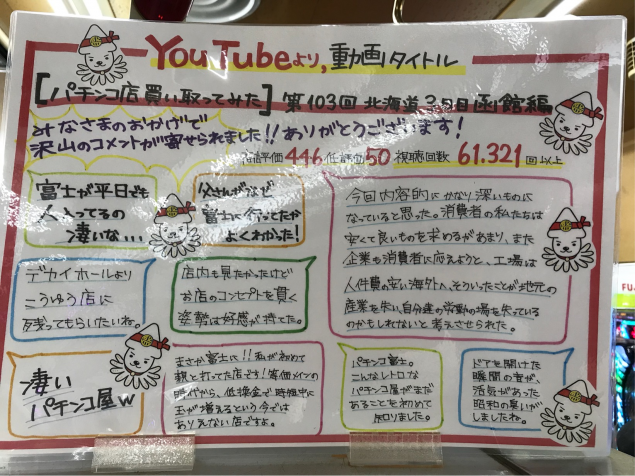 YouTubeより,動画タイトル
[パチンコ店買い取ってみた] 第103回 北海道3日目函館編
みなさまのおかげで
沢山のコメントが寄せられました!!ありがとうございます!
高評価446 低評価50 視聴回数 61.321回以上
富士が平日でも
人入ってるの
凄いな...
父さんがなぜ
富士に行ってたか
よくわかった!
今回内容的にかなり深いものに
なっていると思った。消費者の私たちは
安くて良いものを求めるがあまり、また
企業も消費者に応えようと、工場は
人件費の安い海外へ。そういったことが地元の
産業を失い、自分達の労働の場を失っている
のかもしれないと考えさせられた。
デカイホールより
こうゆう店に
残ってもらいたいね。
店内も見たかったけど
お店のコンセプトを貫く
姿勢は好感が持てた。
凄い
パチンコ屋w
まさか富士に!!私が初めて
親と打ってた店です!等価メインの
時代から、低換金で時短中に
玉が増えるという今では
ありえない店ですよ。
パチンコ富士。
こんなレトロな
パチンコ屋がまだ
あることを初めて
知りました。
ドアを開けた
瞬間の音が、
活気があった
昭和の臭いが
しましたね。